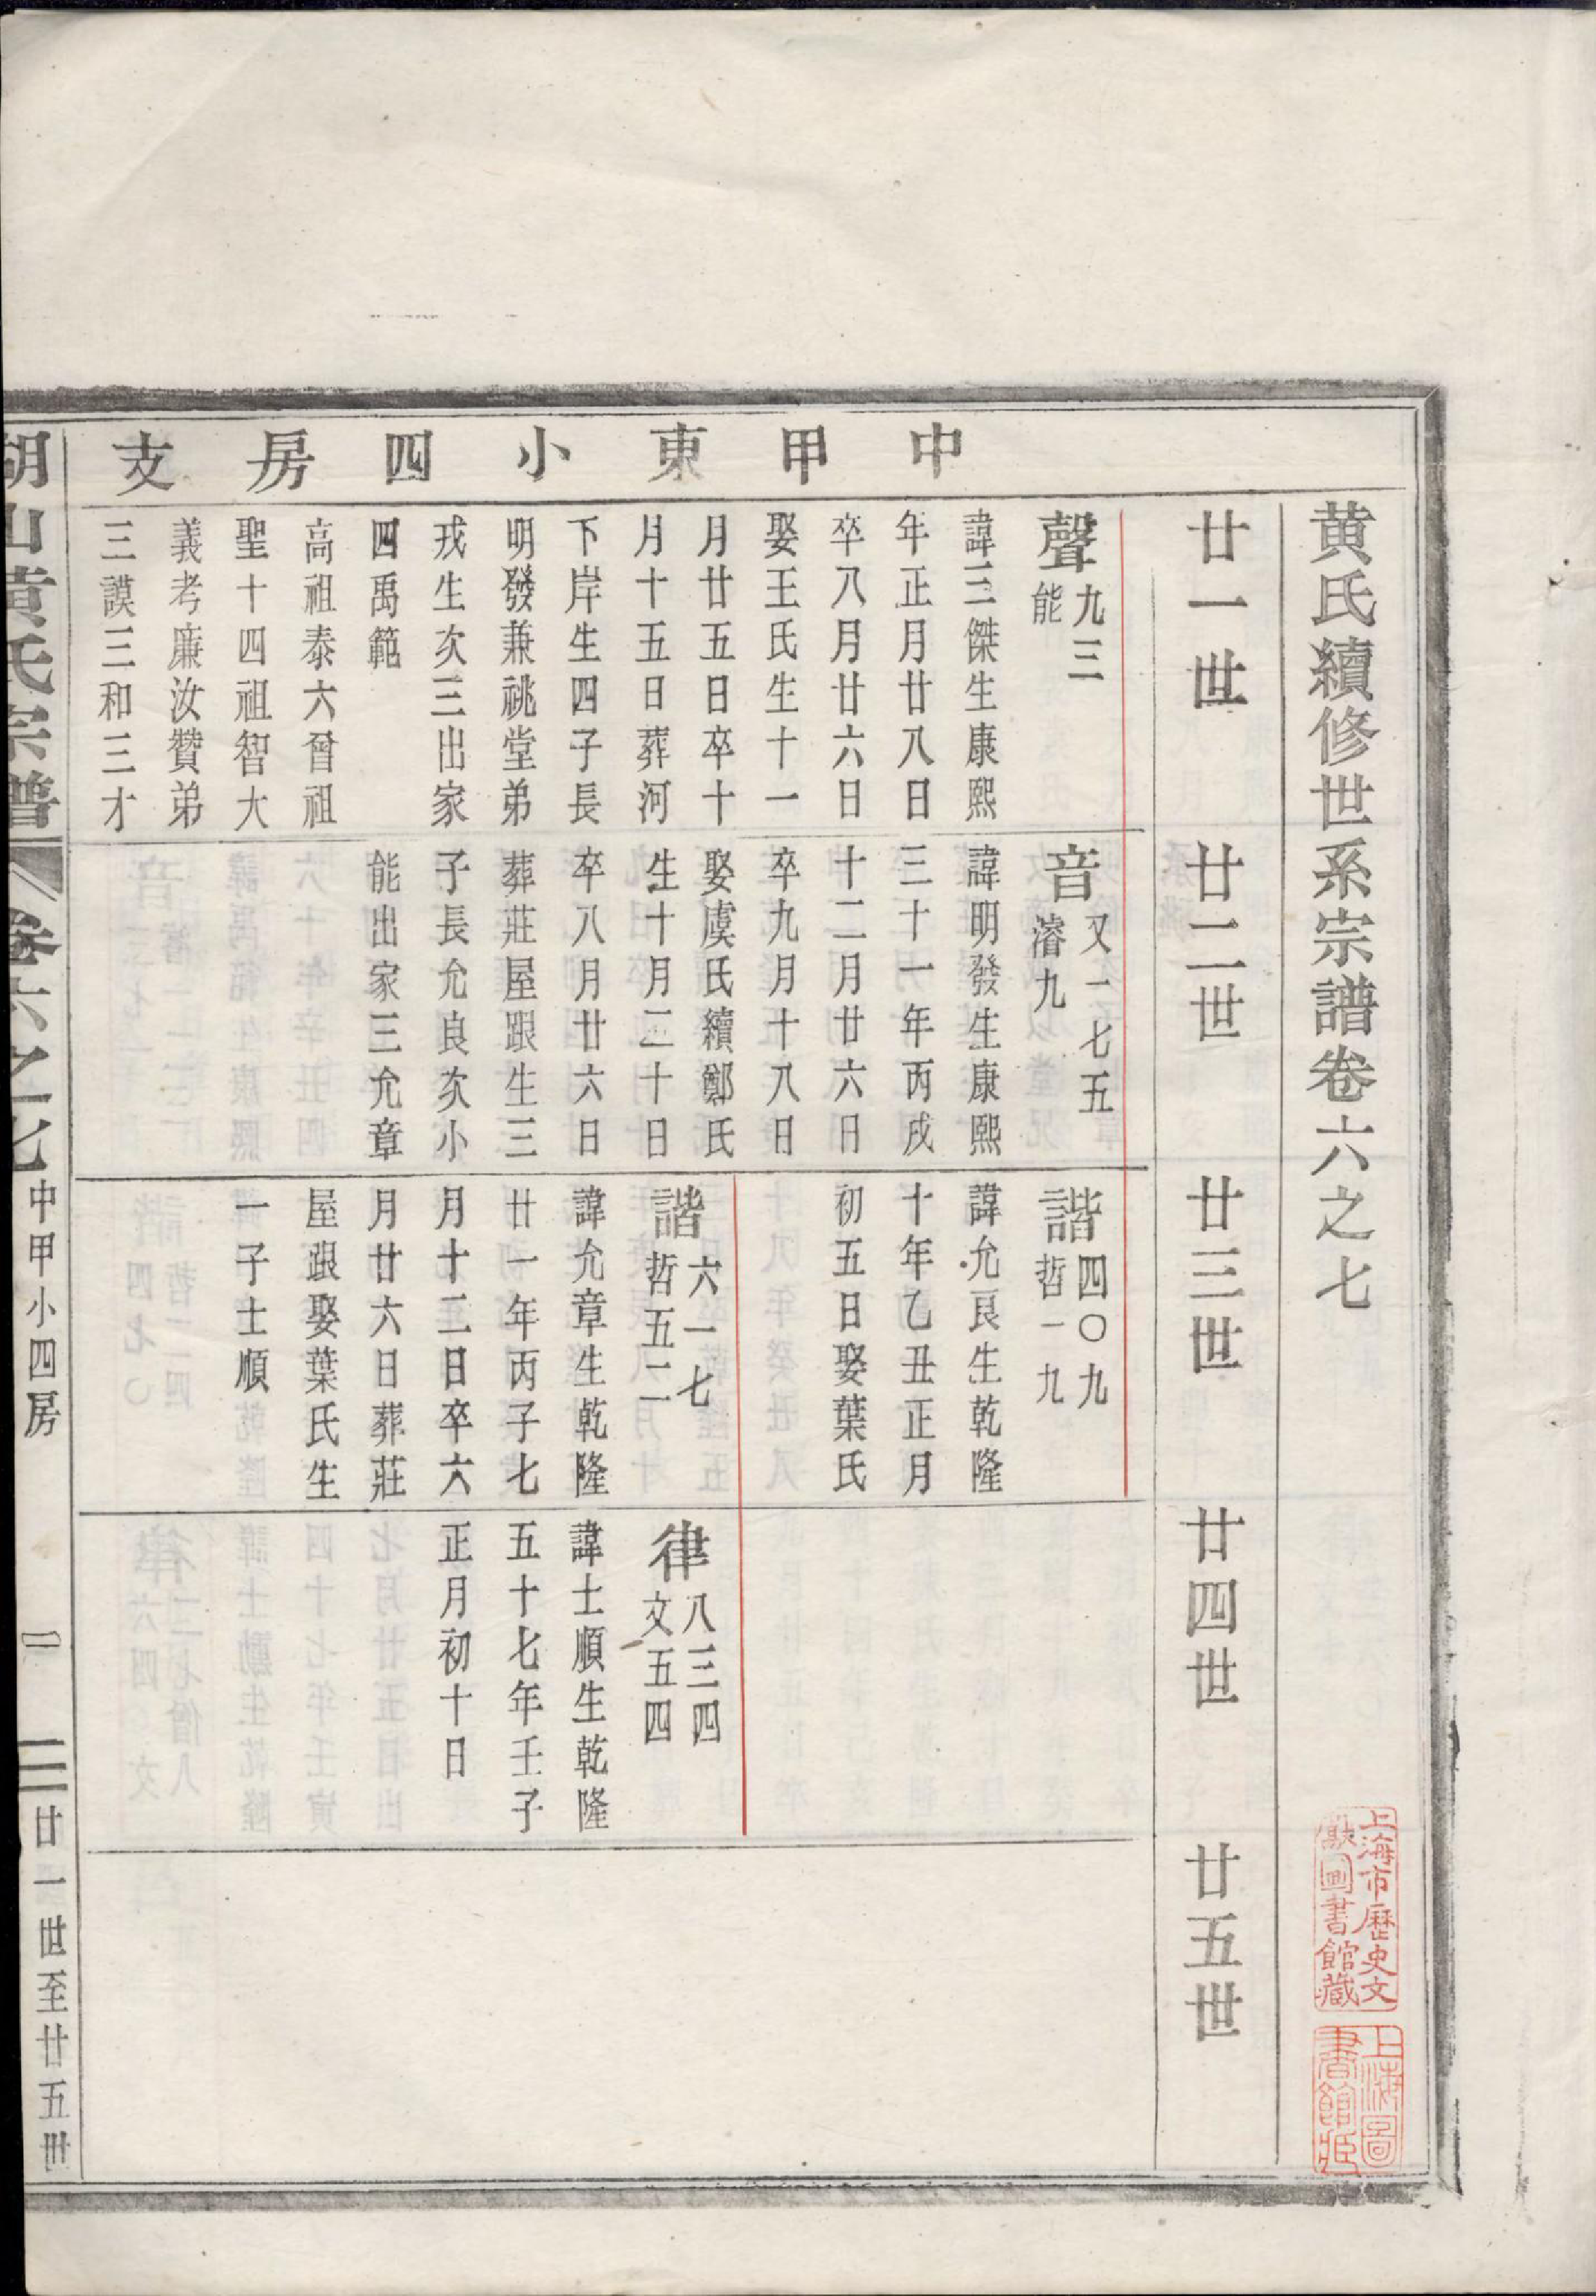 黃氏續修世系宗譜卷六之七
上海市歷史文
獻圖書館藏
上海圖
書館藏
廿一世
廿二世
廿三世
廿四世
廿五世
中甲東小四房支
聲
九三
能
諱三傑生康熙
年正月廿八日
卒八月廿六日
娶王氏生十一
月廿五日卒十
月十五日葬河
下岸生四子長
明發兼祧堂弟
戎生次三出家
四禹範
高祖泰六曾祖
聖十四祖智大
義考廉汝贊弟
三謨三和三才
音
又一七五
濬九
諱明發生康熙
三十一年丙戌
十二月廿六日
卒九月十八日
娶虞氏續鄭氏
生十月二十日
卒八月廿六日
葬莊屋跟生三
子長允良次小
能出家三允章
諧
四〇九
哲一九
諱允良生乾隆
十年乙丑正月
初五日娶葉氏
諧
六一七
哲五二
諱允章生乾隆
廿一年丙子七
月十二日卒六
月廿六日葬莊
屋跟娶葉氏生
一子士順
律
八三四
文五四
諱士順生乾隆
五十七年壬子
正月初十日
胡山黃氏宗譜 卷六之七 中甲小四房 一 廿一世至廿五世